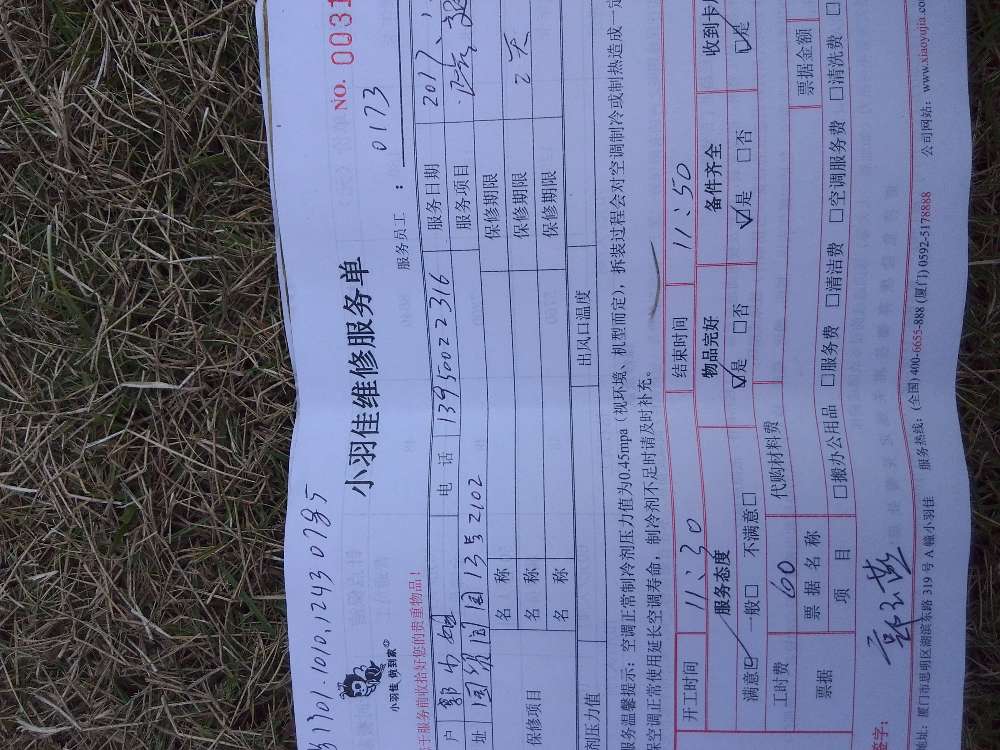 1701.1010.1243 0785
小羽佳 倾到家
小羽佳维修服务单
NO. 0031
服务员工： 0173
于服务前收拾好您的贵重物品！
户 郭 电 话 1395002316 服务日期 2017、
址 园13号2102 服务项目
保修项目
名 称 保修期限
名 称 保修期限 2天
名 称 保修期限
剂压力值 出风口温度
服务温馨提示：空调正常制冷剂压力值为0.45mpa（视环境、机型而定），拆装过程会对空调制冷或制热造成一定
保空调正常使用延长空调寿命，制冷剂不足时请及时补充。
开工时间 11:30 结束时间 11:50
服务态度 物品完好 备件齐全 收到卡
满意☑ 一般□ 不满意□ ☑是 □否 ☑是 □否 ☑是
工时费 160 代购材料费
票据 票 据 名 称 票据金额
项 目 □搬办公用品 □服务费 □清洁费 □空调服务费 □清洗费
签字：
地址：厦门市思明区湖滨东路 319 号 A 幢小羽佳 服务热线：(全国) 400-6655-888 (厦门) 0592-5178888 公司网站：www.xiaoyujia.co